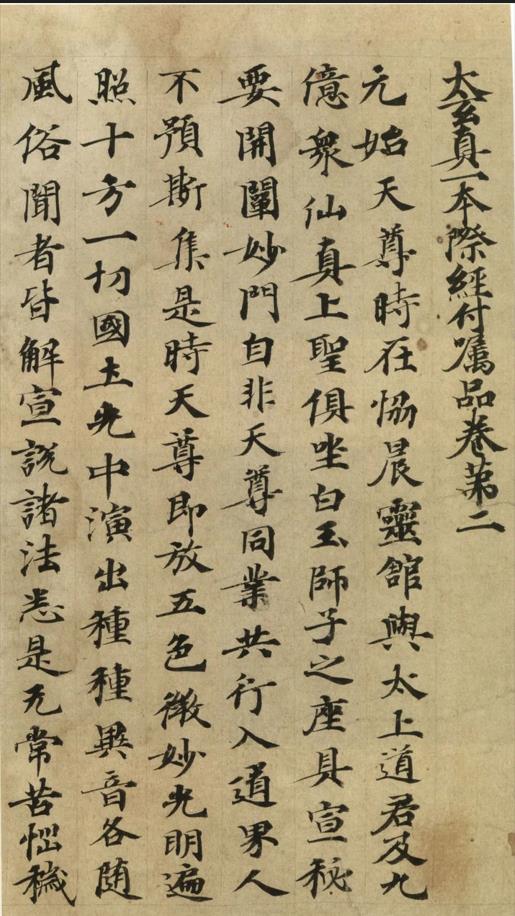 太玄真一本際經付囑品卷第二
元始天尊時在恊晨靈館與太上道君及九
億衆仙真上聖俱坐白玉師子之座具宣秘
要開闡妙門自非天尊同業共行入道界人
不預斯集是時天尊即放五色微妙光明遍
照十方一切國土光中演出種種異音各随
風俗聞者皆解宣説諸法悉是无常苦惱穢